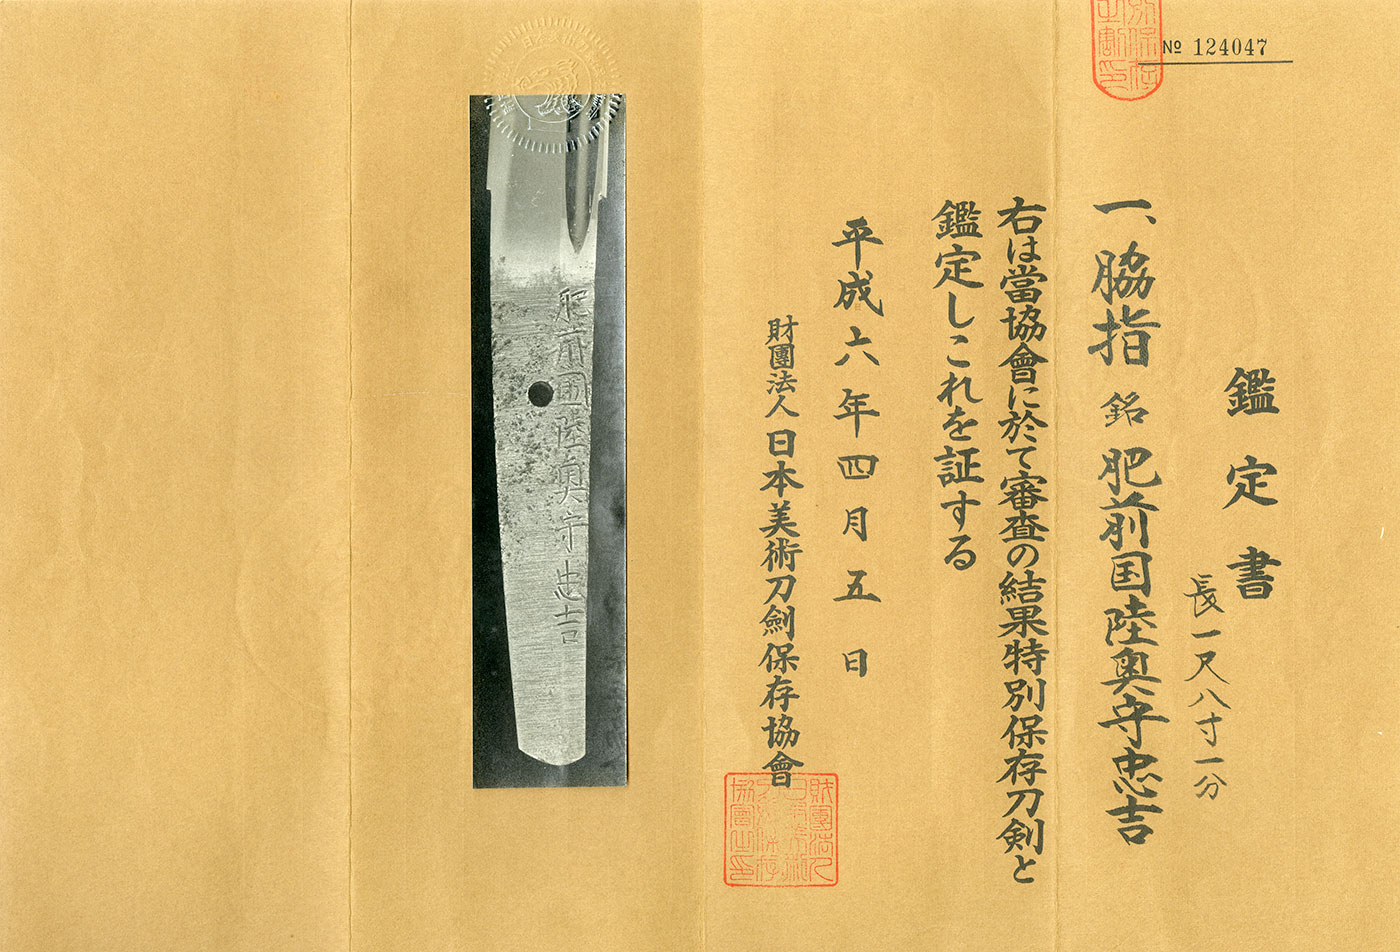 № 124047
鑑定書
長一尺八寸一分
一、脇指 銘 肥前国陸奥守忠吉
右は當協會に於て審査の結果特別保存刀剣と
鑑定しこれを証する
平成六年四月五日
財團法人日本美術刀劍保存協會
肥前國陸奥守忠吉